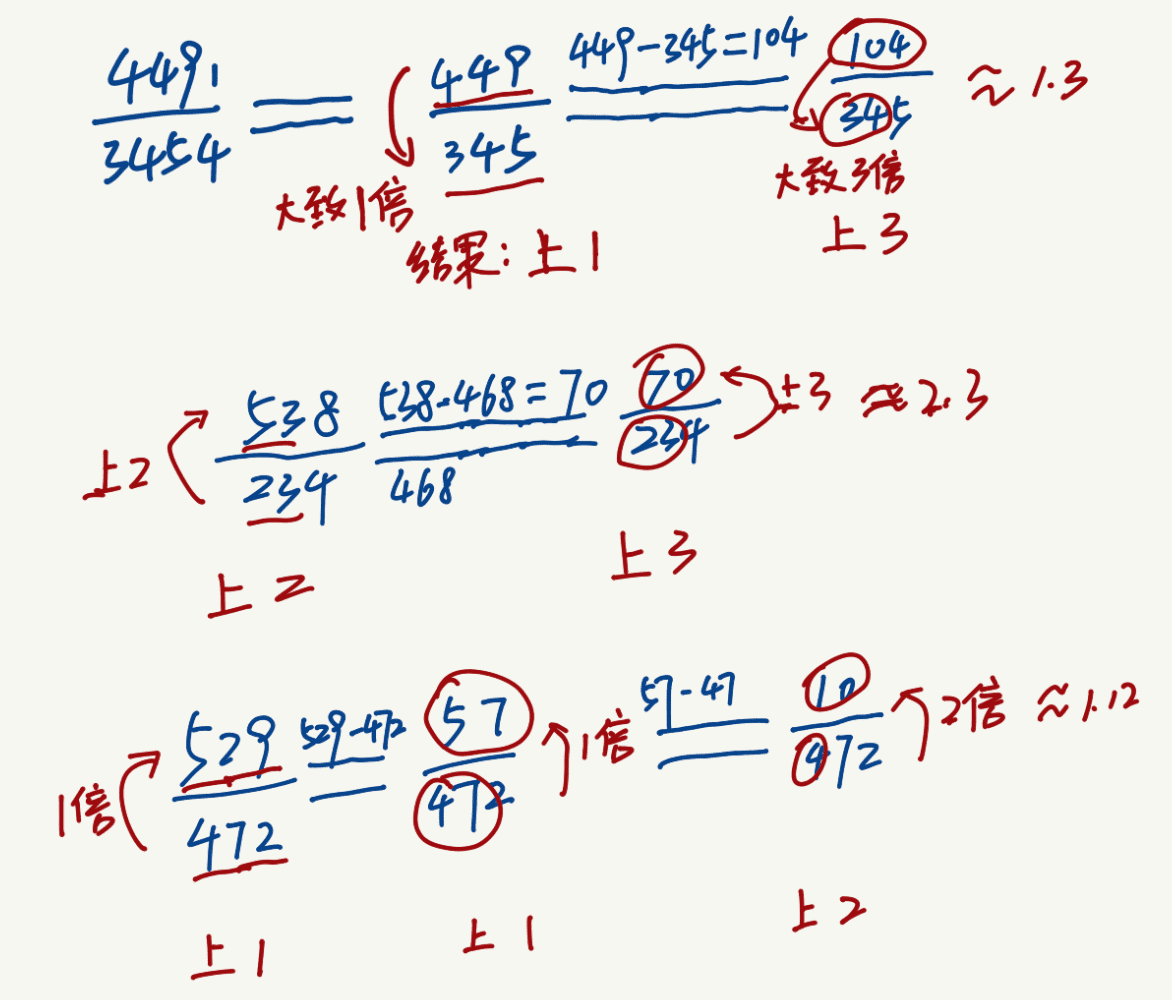 4491/3454 = 449/345 449-345=104 104/345 ≈ 1.3
大致1倍 大致3倍
结果:上1 上3
538/234 538-468=70 70/234 上3 ≈ 2.3
上2 468
上2 上3
529/472 529-472 57/472 1倍 57-47 10/472 2倍 ≈1.12
1倍
上1 上1 上2